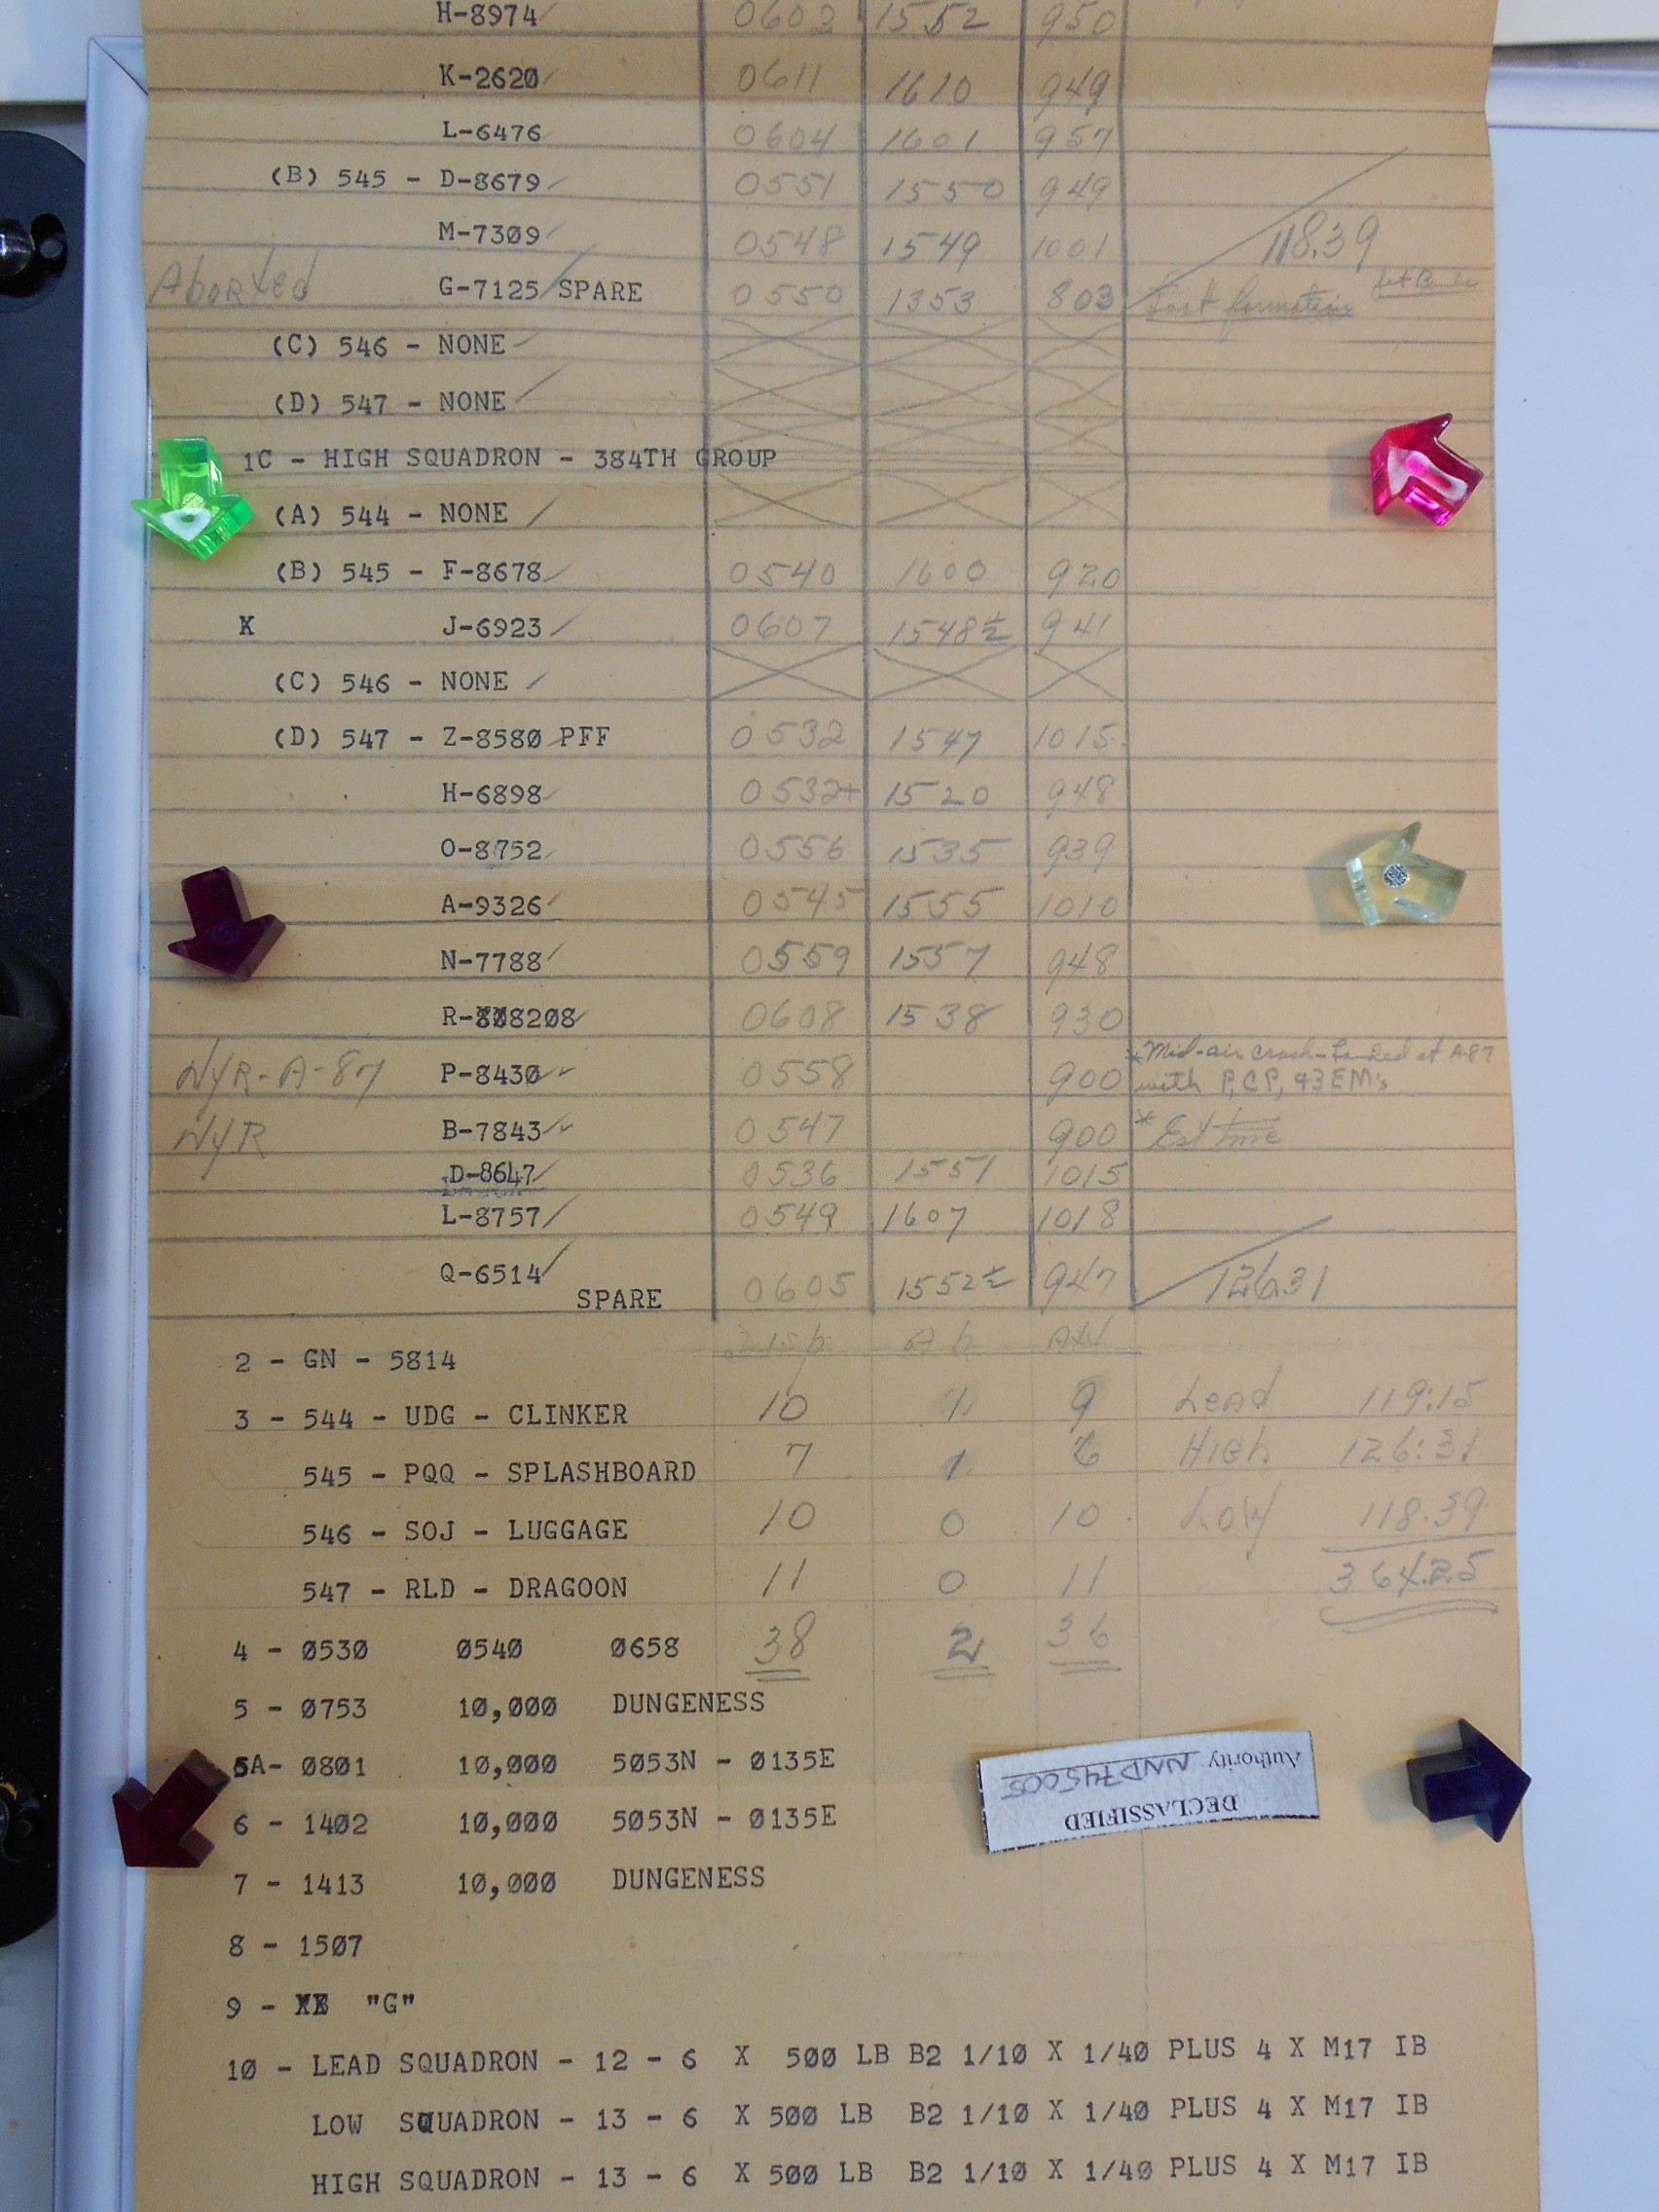 H-8974 0603 1552 950
K-2620 0611 1610 949
L-6476 0604 1601 957
(B) 545 - D-8679 0551 1550 949
M-7309 0548 1549 1001 118.39
Aborted G-7125 SPARE 0550 1353 803 Lost formation
(C) 546 - NONE
(D) 547 - NONE
1C - HIGH SQUADRON - 384TH GROUP
(A) 544 - NONE
(B) 545 - F-8678 0540 1600 920
K J-6923 0607 1548½ 941
(C) 546 - NONE
(D) 547 - Z-8580 PFF 0532 1547 1015
H-6898 0532+ 1520 948
O-8752 0556 1535 939
A-9326 0545 1555 1010
N-7788 0559 1557 948
R-8208 0608 1538 930
*Mid-air crash-Landed at A-87
NYR-A-87 P-8430 0558 900 with P, CP, &3EM's
NYR B-7843 0547 900 *Est time
D-8647 0536 1551 1015
L-8757 0549 1607 1018
Q-6514 0605 1552½ 947 126.31
SPARE
Disp Ab Att
2 - GN - 5814
3 - 544 - UDG - CLINKER 10 1 9 Lead 119:15
545 - PQQ - SPLASHBOARD 7 1 6 High 126:31
546 - SOJ - LUGGAGE 10 0 10 Low 118.39
547 - RLD - DRAGOON 11 0 11 364.25
4 - 0530 0540 0658 38 2 36
5 - 0753 10,000 DUNGENESS
5A- 0801 10,000 5053N - 0135E
6 - 1402 10,000 5053N - 0135E
DECLASSIFIED
Authority NND745005
7 - 1413 10,000 DUNGENESS
8 - 1507
9 - "G"
10 - LEAD SQUADRON - 12 - 6 X 500 LB B2 1/10 X 1/40 PLUS 4 X M17 IB
LOW SQUADRON - 13 - 6 X 500 LB B2 1/10 X 1/40 PLUS 4 X M17 IB
HIGH SQUADRON - 13 - 6 X 500 LB B2 1/10 X 1/40 PLUS 4 X M17 IB